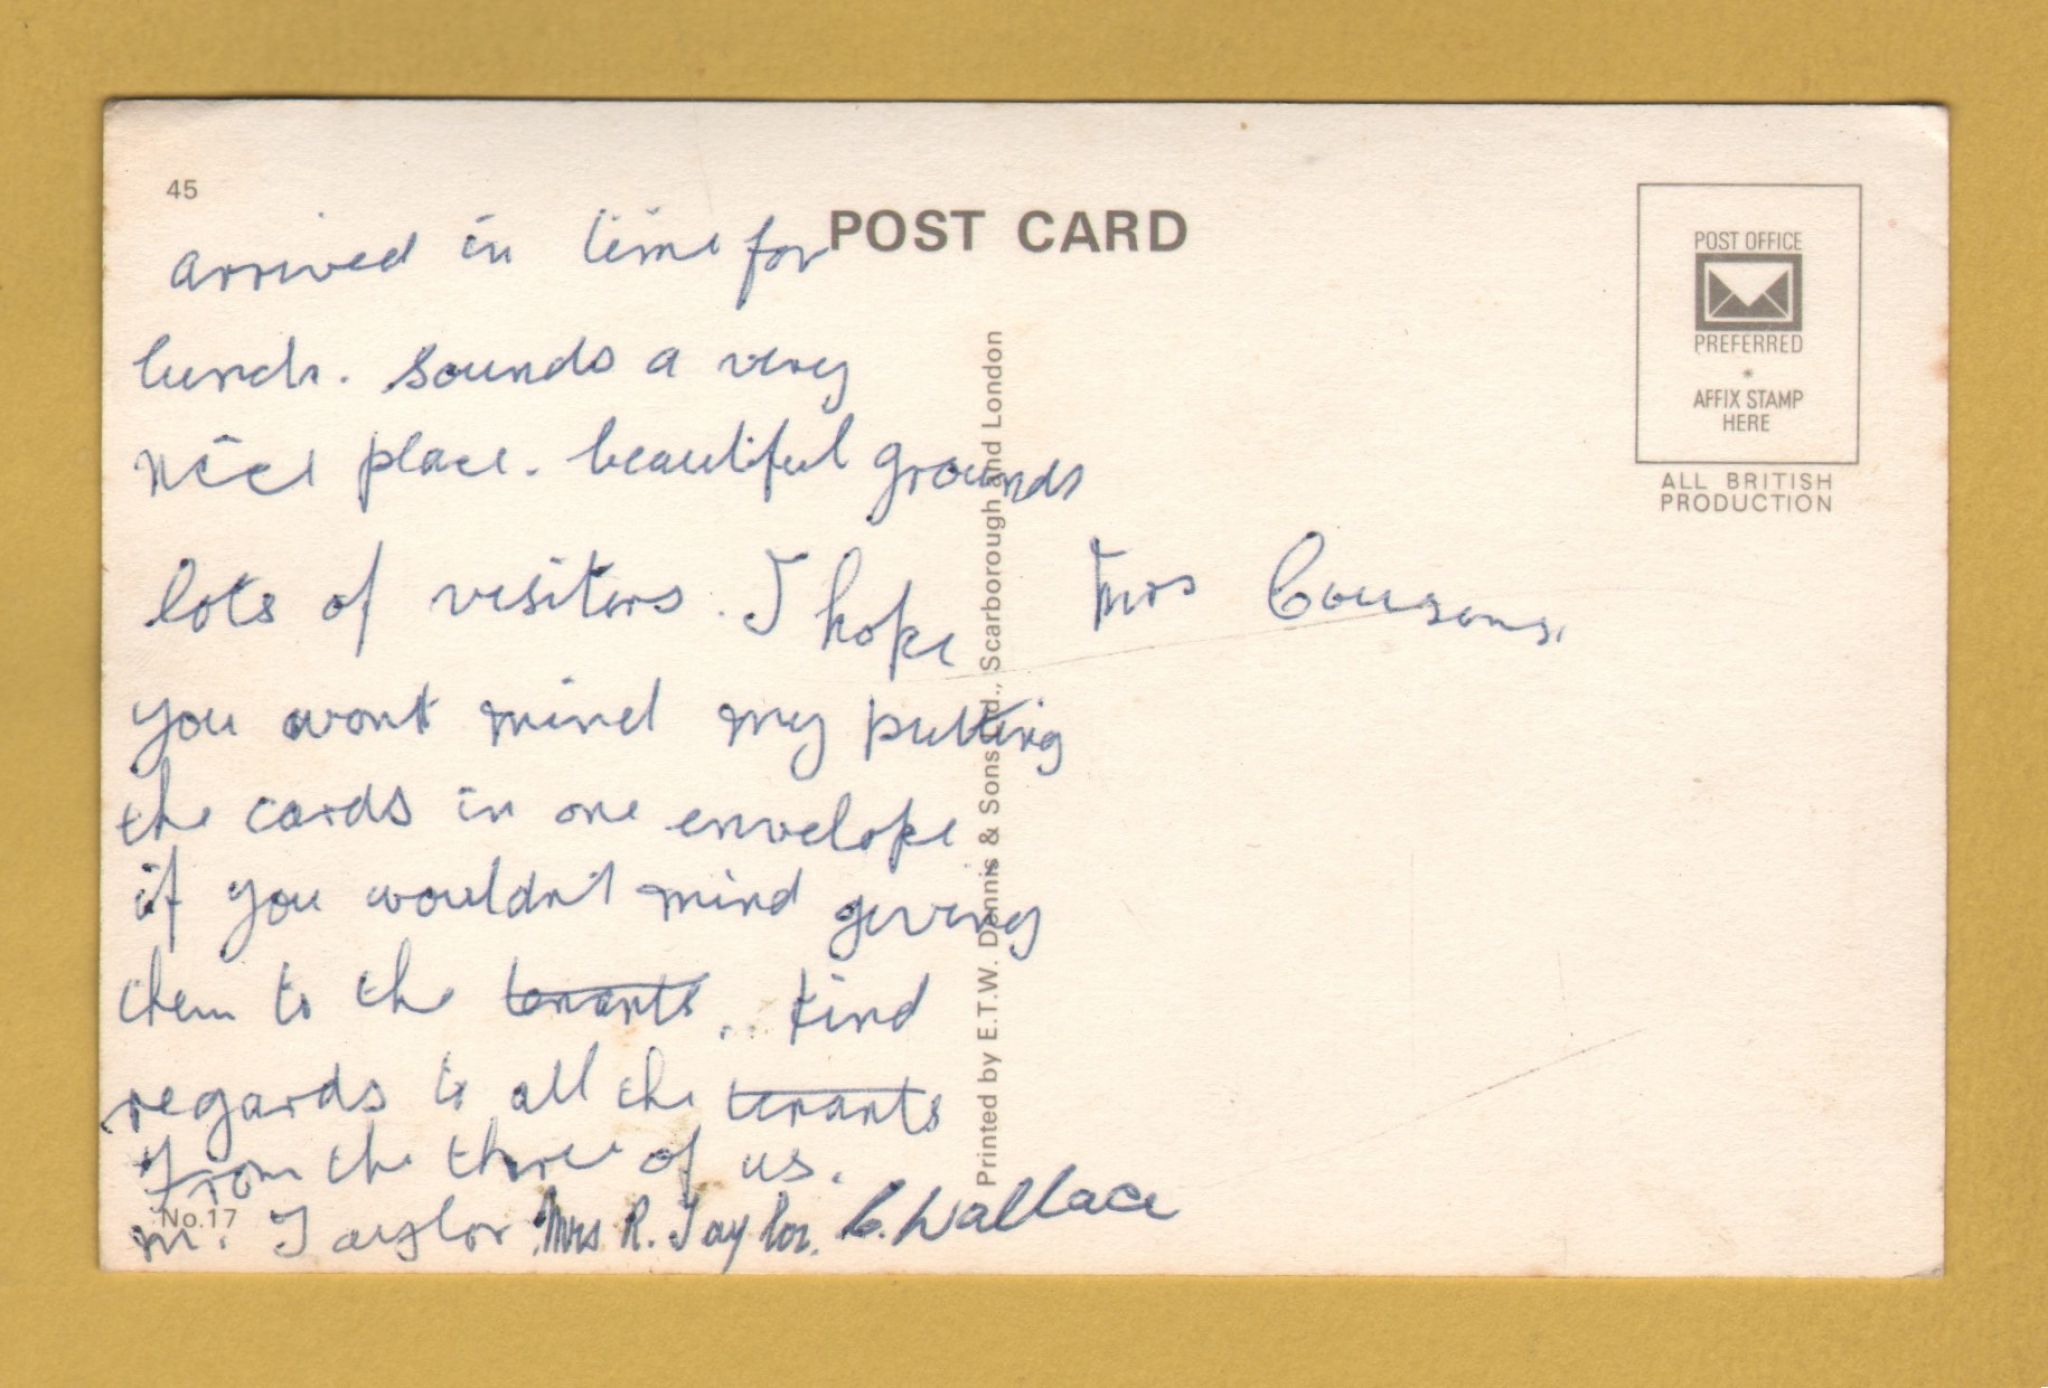 45
POST CARD
arrived in time for
lunch. sounds a very
nice place. beautiful grounds
lots of visitors. I hope
you wont mind my putting
the cards in one envelope
if you wouldn't mind giving
them to the tenants.. Kind
regards to all the tenants
from the three of us.
m. Taylor Mrs R. Taylor. C. Wallace
No.17
Printed by E.T.W. Dennis & Sons Ltd., Scarborough and London
POST OFFICE
PREFERRED
*
AFFIX STAMP
HERE
ALL BRITISH
PRODUCTION
Mrs Cousons.